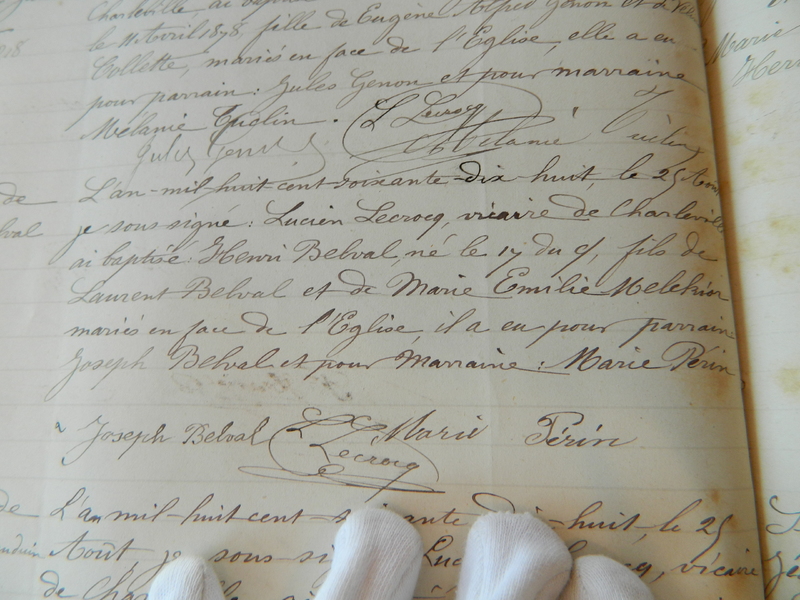 Charleville ai baptisé
fille de Eugène Alfred Genon et de
le 11 Avril 1878,
Collette, mariés en face de l'Eglise, elle a eu
pour parrain : Jules Genon et pour marraine
Mélanie
L Lecrocq
Mélanie
L'an mil huit cent soixante dix huit, le 25 Aout
je sous signé : Lucien Lecrocq, vicaire de Charleville
ai baptisé : Henri Belval, né le 17 du ct, fils de
Laurent Belval et de Marie Emilie Melchior
mariés en face de l'Eglise, il a eu pour parrain
Joseph Belval et pour Marraine : Marie Périn
Joseph Belval L Lecrocq Marie Périn
L'an mil huit cent soixante dix-huit, le 25
Août, je sous vicaire
de
Marie
de
val
de